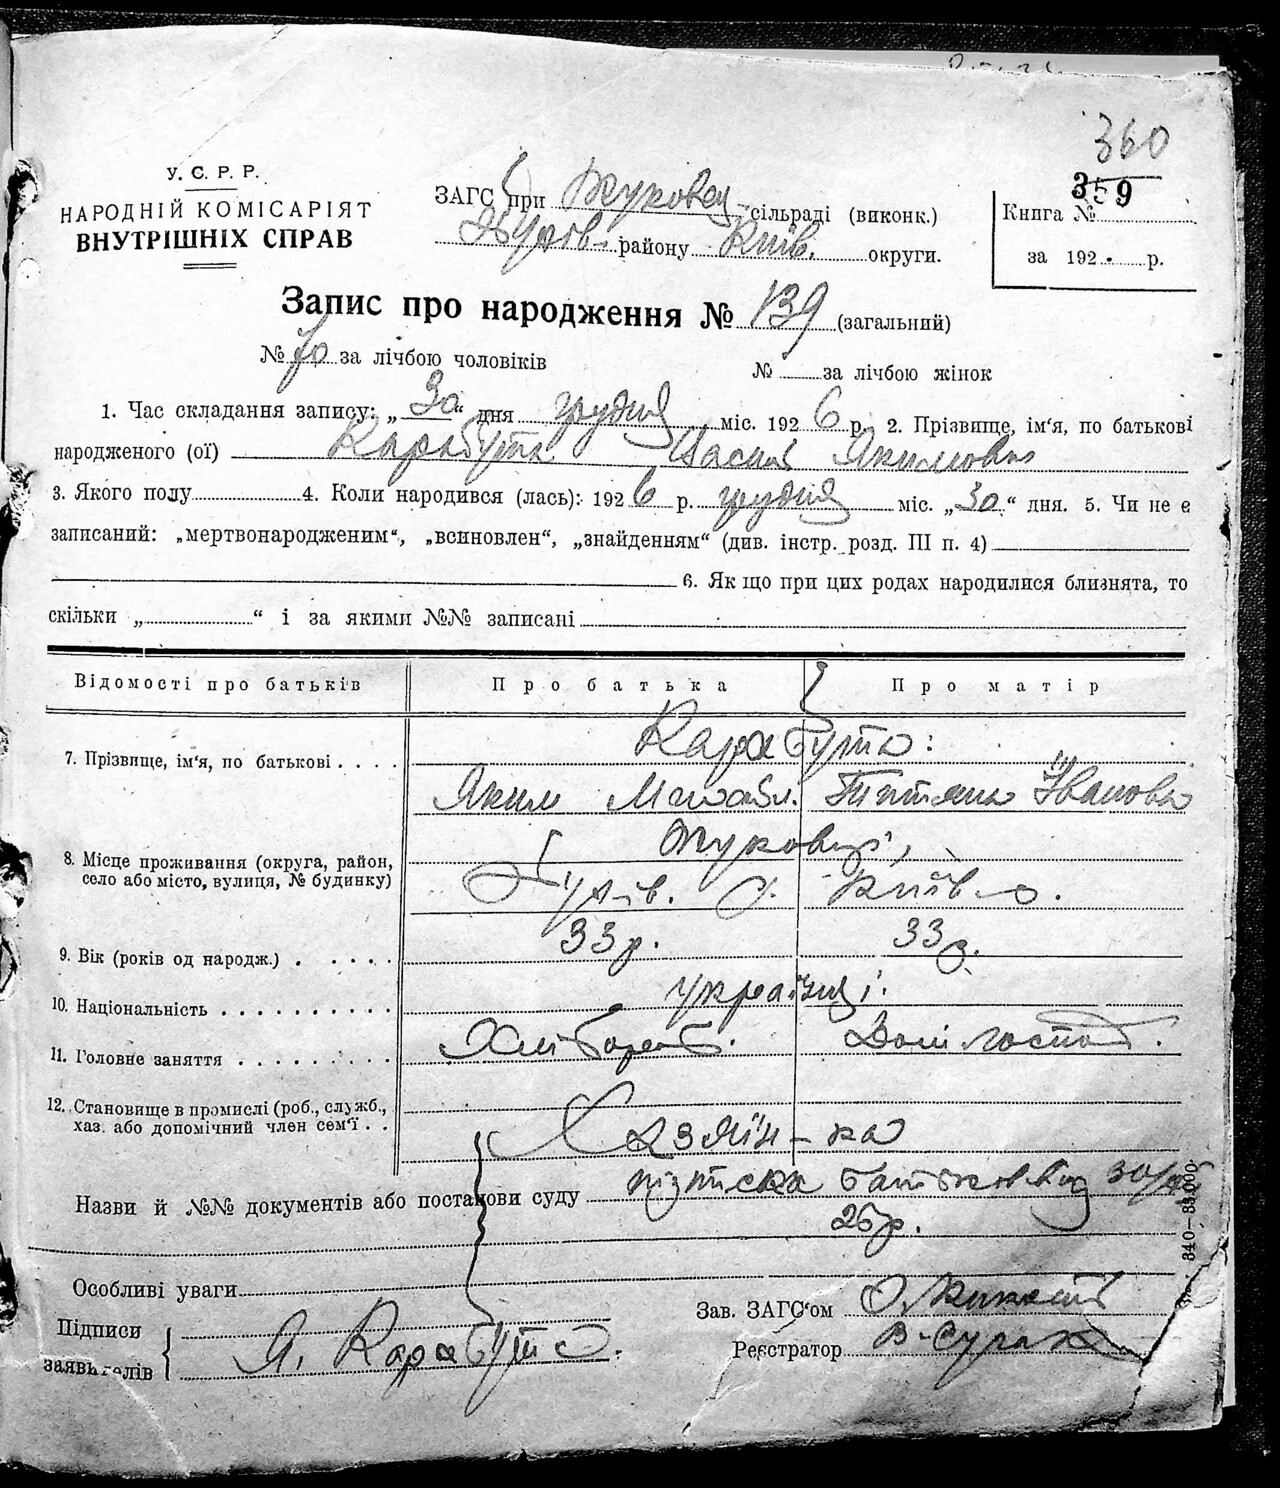 360
359
У. С. Р. Р.
НАРОДНІЙ КОМІСАРІЯТ
ВНУТРІШНІХ СПРАВ
ЗАГС при Жуковец сільраді (виконк.)
району Київ. округи.
Книга №
за 192 . р.
Запис про народження № 139 (загальний)
№ 70 за лічбою чоловіків № за лічбою жінок
1. Час складання запису: „30“ дня грудня міс. 1926 р. 2. Прізвище, ім'я, по батькові
народженого (ої) Карабута Василь Якимович
3. Якого полу 4. Коли народився (лась): 1926 р. грудня міс. „30“ дня. 5. Чи не є
записаний: „мертвонародженим“, „всиновлен“, „знайденням“ (див. інстр. розд. III п. 4)
6. Як що при цих родах народилися близнята, то
скільки „ “ і за якими №№ записані
Відомості про батьків Про батька Про матір
7. Прізвище, ім'я, по батькові . . . . Карабута:
Яким Михайл. Тетяна Іванова
8. Місце проживання (округа, район, село або місто, вулиця, № будинку) Жуковці,
Київ о.
9. Вік (років од народж.) . . . . . 33 р. 33 р.
10. Національність . . . . . . . . . . українці.
11. Головне заняття . . . . . . . . Хлібороб. Дом. господ.
12. Становище в промислі (роб., служб., хаз. або допомічний член сем'ї . . Хазяїн-ка
Назви й №№ документів або постанови суду підписка батьков від 30/XII
26 р.
Особливі уваги
Підписи
заявителів Я. Карабута.
Зав. ЗАГС'ом
Реєстратор
340—85.000